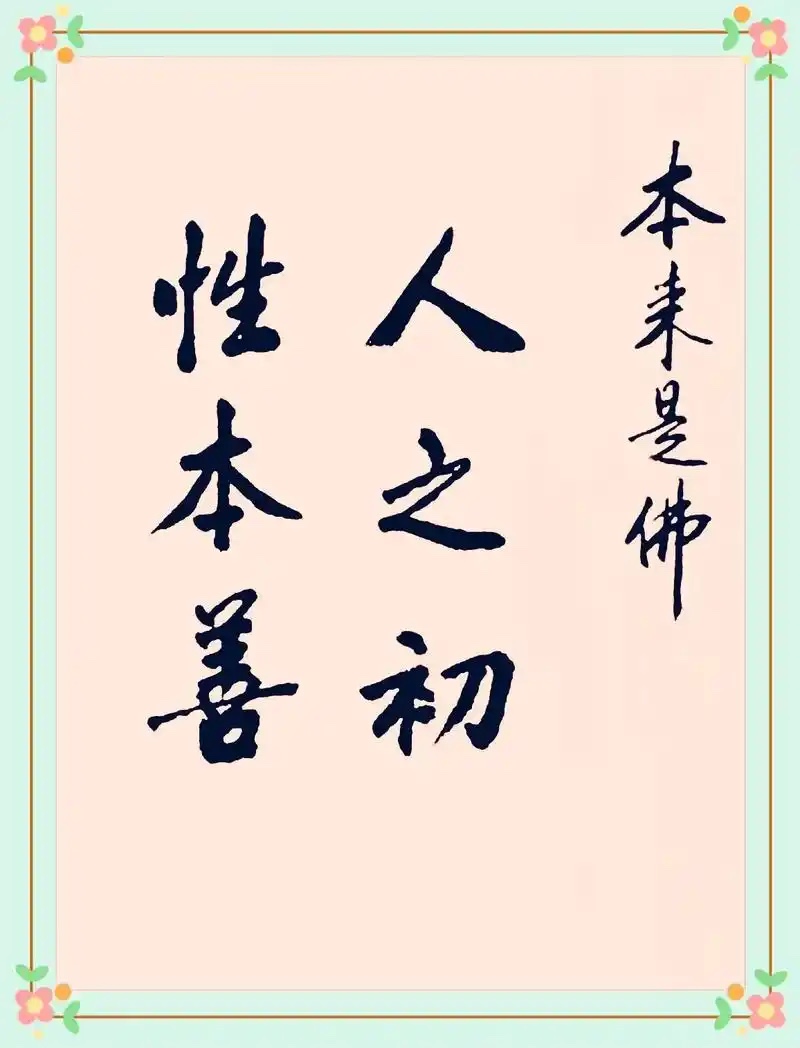 本来是佛
人之初
性本善